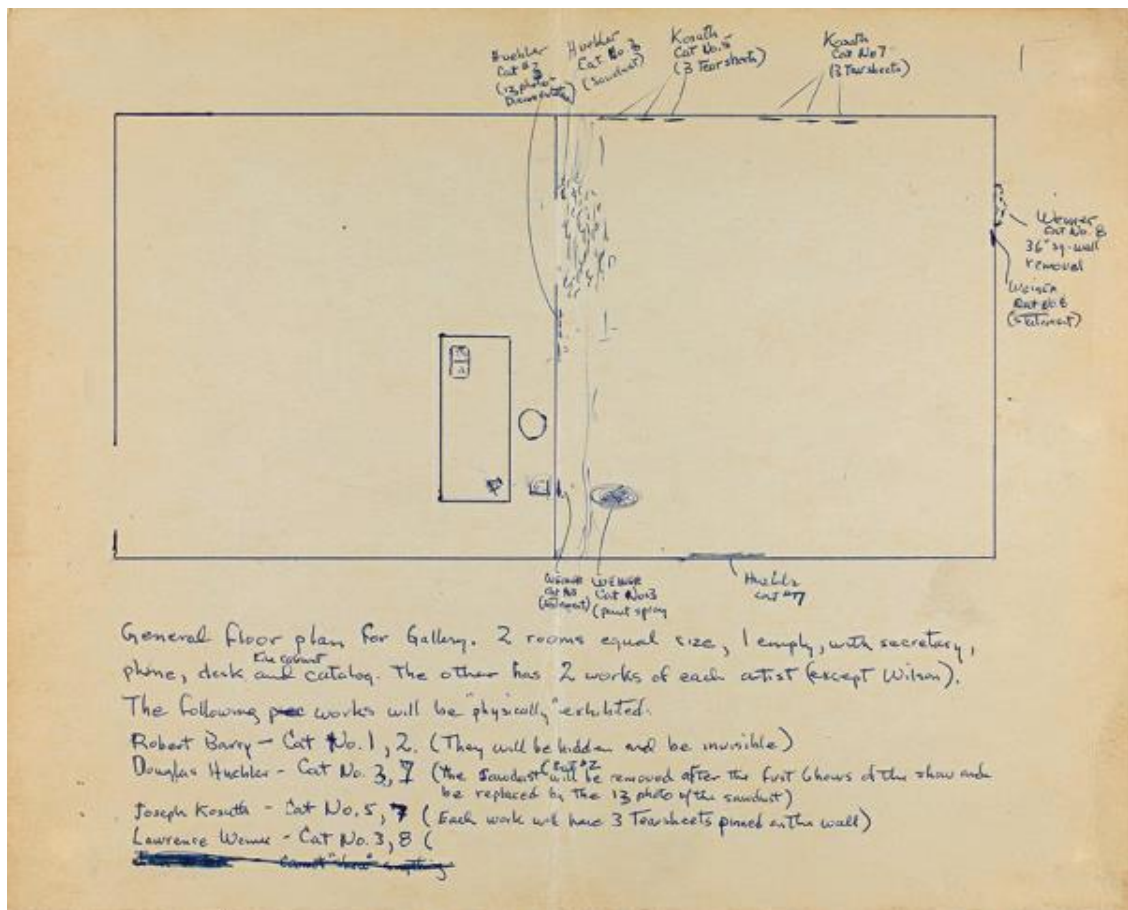 Huebler
Cat #3
(13 photo-
Documentation)
Huebler
Cat No. 3
(sawdust)
Kosuth
Cat No. 5
(3 Tear sheets)
Kosuth
Cat No 7
(3 Tear sheets)
1
Weiner
Cat No. 8
36" sq. wall
removal
Weiner
Cat No. 8
(Statement)
WEINER
Cat No
(statement)
WEINER
Cat No. 3
(paint spray
Huebler
Cat #7
General floor plan for Gallery. 2 rooms equal size, 1 empty, with secretary,
phone, desk and catalog. The other has 2 works of each artist (except Wilson).
The following works will be "physically" exhibited.
Robert Barry - Cat No. 1, 2. (They will be hidden and be invisible)
Douglas Huebler - Cat No. 3, 7 (the sawdust (Cat #2 will be removed after the first 6 hours of the show and
be replaced by the 13 photo of the sawdust)
Joseph Kosuth - Cat No. 5, 7 (Each work will have 3 Tearsheets pinned on the wall)
Lawrence Weiner - Cat No. 3, 8 (
Cannot "show" anything